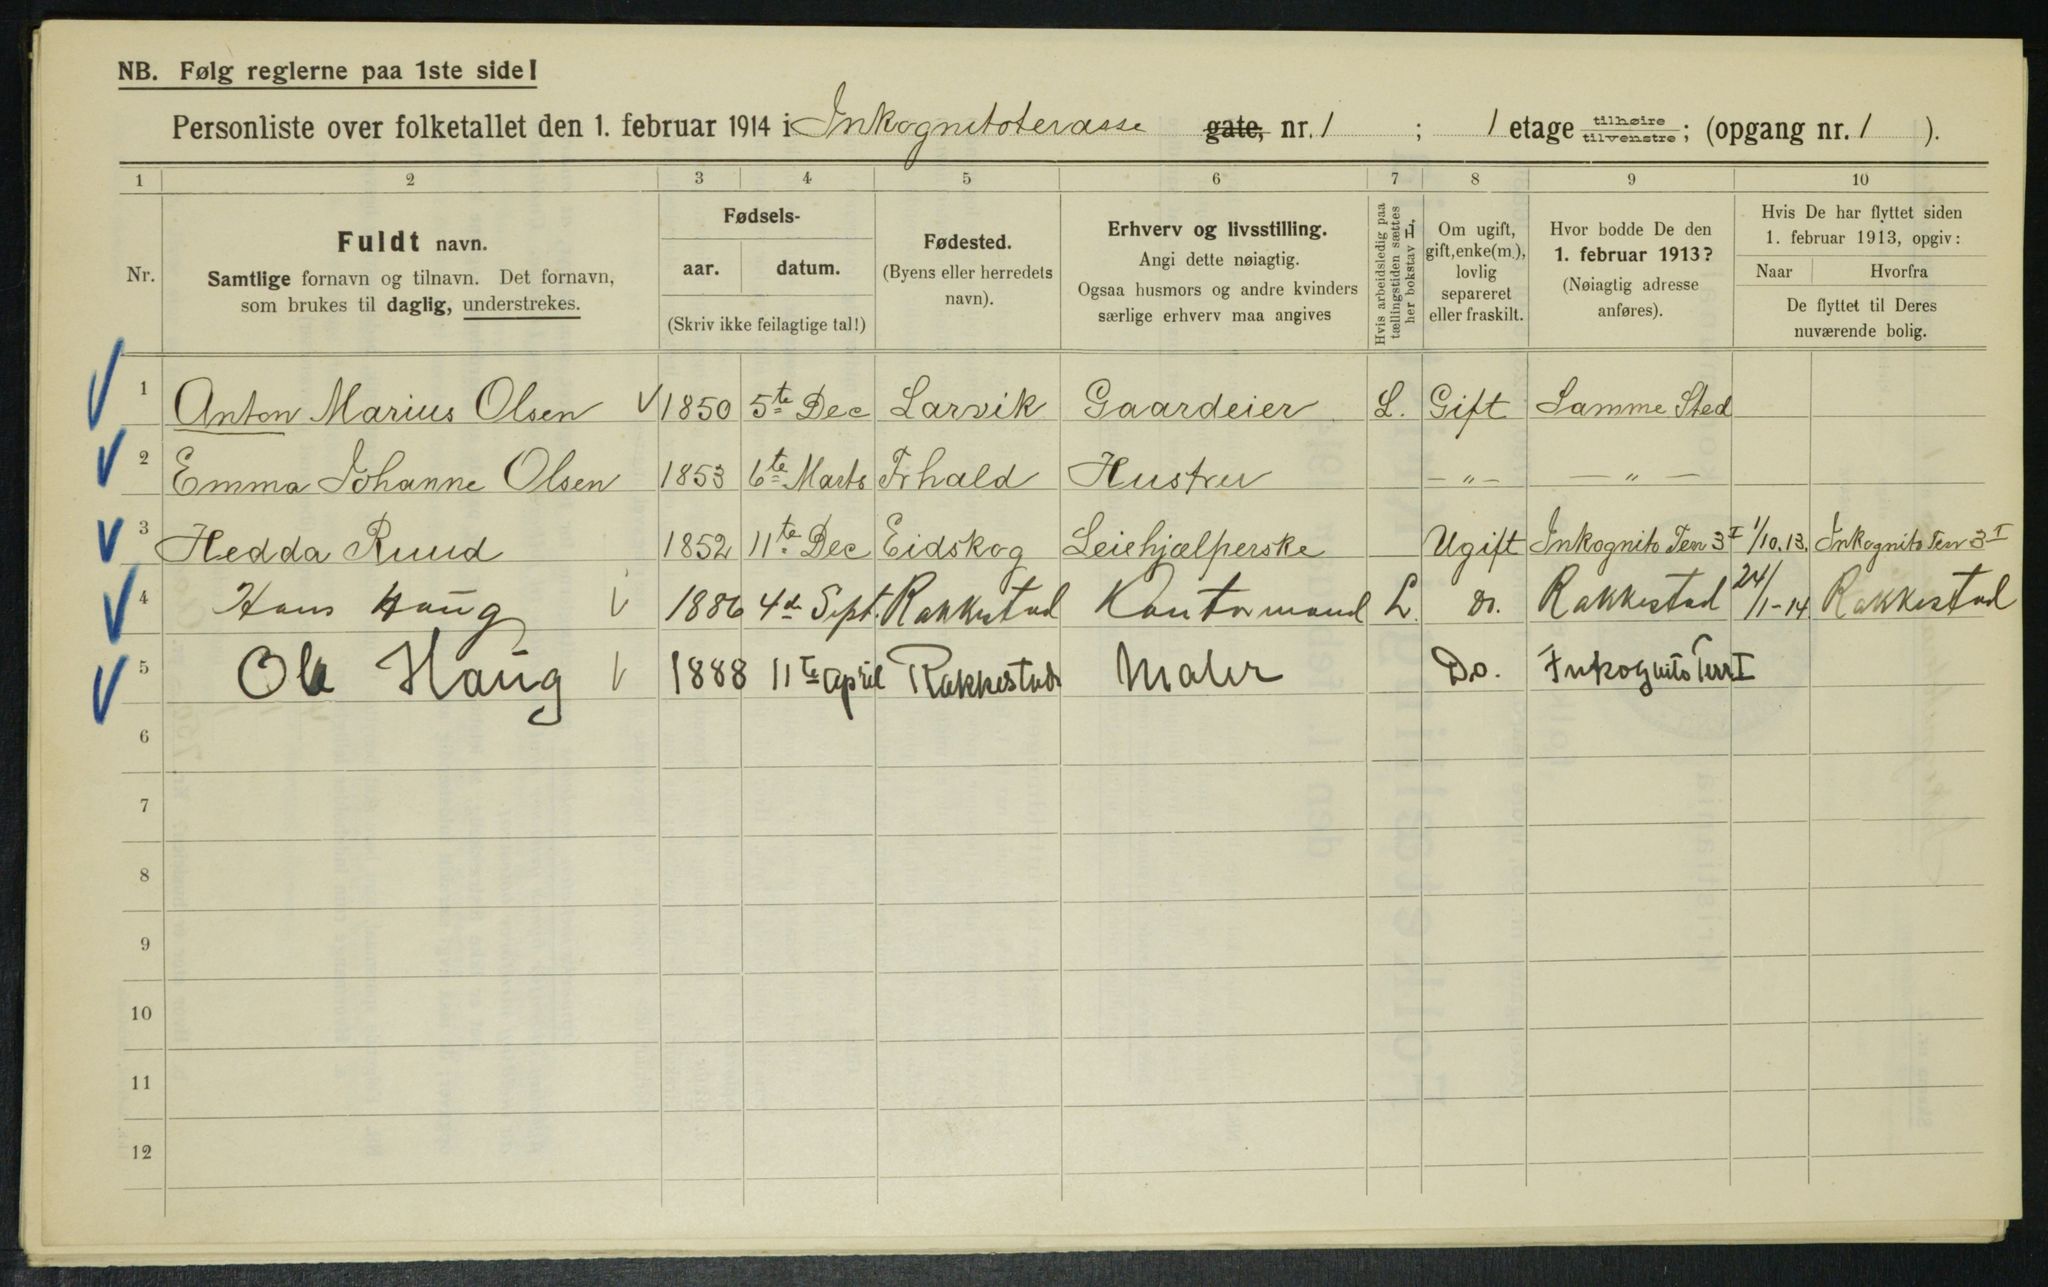 NB. Følg reglerne paa 1ste side!
Personliste over folketallet den 1. februar 1914 i Inkognitoterasse gate, nr. 1 ; 1 etage tilhøire tilvenstre ; (opgang nr. 1 ).
1 2 3 4 5 6 7 8 9 10
Nr.
Fuldt navn.
Samtlige fornavn og tilnavn. Det fornavn,
som brukes til daglig, understrekes.
Fødsels-
aar. datum.
(Skriv ikke feilagtige tal!)
Fødested.
(Byens eller herredets
navn).
Erhverv og livsstilling.
Angi dette nøiagtig.
Ogsaa husmors og andre kvinders
særlige erhverv maa angives
Hvis arbeidsledig paa
tællingstiden sættes
her bokstav L.
Om ugift,
gift, enke(m.),
lovlig
separeret
eller fraskilt.
Hvor bodde De den
1. februar 1913?
(Nøiagtig adresse
anføres).
Hvis De har flyttet siden
1. februar 1913, opgiv:
Naar Hvorfra
De flyttet til Deres
nuværende bolig.
1 Anton Marius Olsen 1850 5te Dec Larvik Gaardeier L. Gift Samme Sted
2 Emma Johanne Olsen 1853 6te Marts Frhald Hustru — „ — — „ —
3 Hedda Ruud 1852 11te Dec Eidskog Leiehjælperske Ugift Inkognito Terr 3 I 1/10.13. Inkognito Terr 3 I
4 Hans Haug 1886 4de Sept. Rakkestad Kontormand L. Do. Rakkestad 24/1-14. Rakkestad
5 Ole Haug 1888 11te april Rakkestad Maler Do. Inkognito Terr I
6
7
8
9
10
11
12